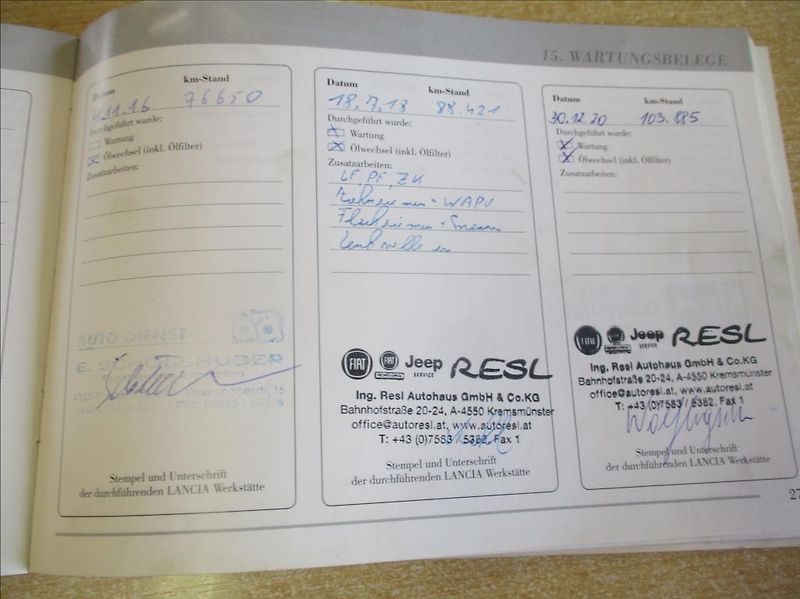 15. WARTUNGSBELEGE
Datum km-Stand
11.16 76650
Durchgeführt wurde:
Wartung
Ölwechsel (inkl. Ölfilter)
Zusatzarbeiten:
AUTO DIENST
E. HUBER
Stempel und Unterschrift
der durchführenden LANCIA Werkstätte
Datum km-Stand
18.7.18 88.421
Durchgeführt wurde:
Wartung
Ölwechsel (inkl. Ölfilter)
Zusatzarbeiten:
LF, PF, ZK
Zahnriemen + WAPU
Flachriemen + Spanner
FIAT Jeep RESL
SERVICE
Ing. Resl Autohaus GmbH & Co.KG
Bahnhofstraße 20-24, A-4550 Kremsmünster
office@autoresl.at, www.autoresl.at
T: +43 (0)7583 / 5382, Fax 1
Stempel und Unterschrift
der durchführenden LANCIA Werkstätte
Datum km-Stand
30.12.20 103.885
Durchgeführt wurde:
Wartung
Ölwechsel (inkl. Ölfilter)
Zusatzarbeiten:
FIAT Jeep RESL
Ing. Resl Autohaus GmbH & Co.KG
Bahnhofstraße 20-24, A-4550 Kremsmünster
office@autoresl.at, www.autoresl.at
T: +43 (0)7583 / 5382, Fax 1
Stempel und Unterschrift
der durchführenden LANCIA Werkstätte
27